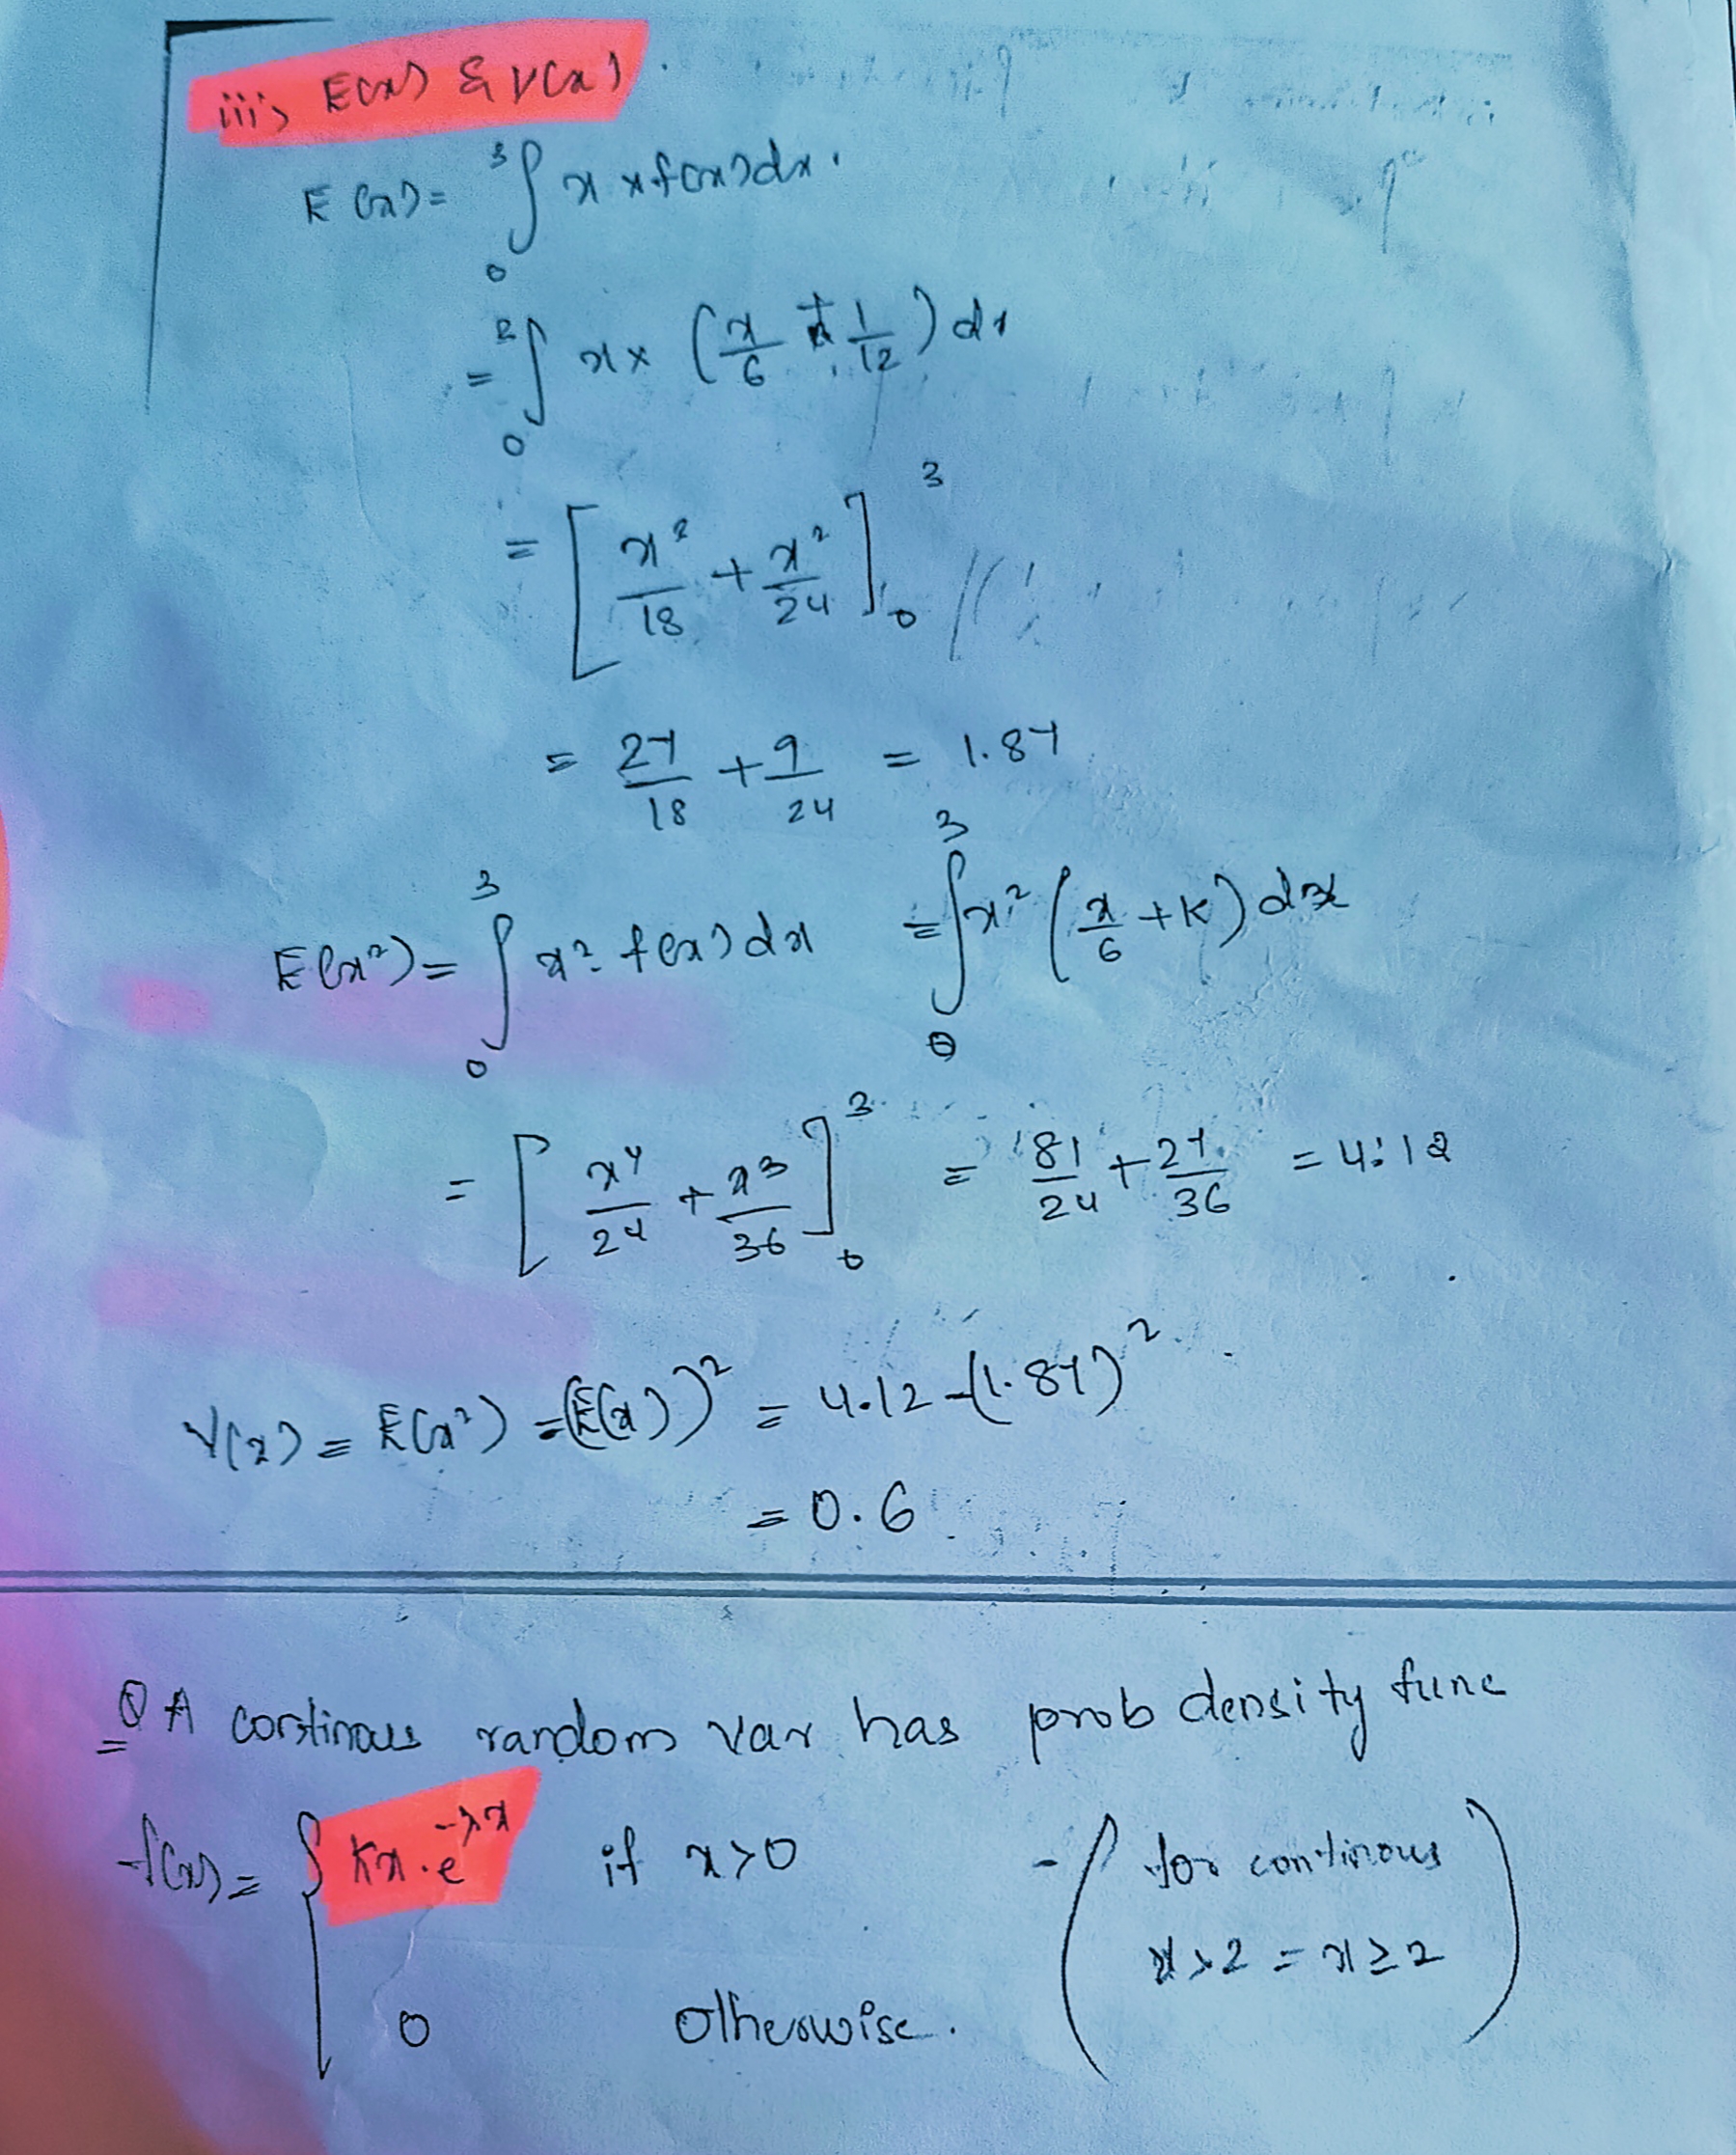 iii) E(x) & V(x)
E(x) = ³∫₀ x × f(x) dx.
= ³∫₀ x × (x/6 + 1/12) dx
= [x³/18 + x²/24]₀³
= 27/18 + 9/24 = 1.87
E(x²) = ³∫₀ x² f(x) dx = ³∫₀ x² (x/6 + K) dx
= [x⁴/24 + x³/36]₀³ = 81/24 + 27/36 = 4.12
V(x) = E(x²) - (E(x))² = 4.12 - (1.87)²
= 0.6
Q A continous random var has prob density func
f(x) = { Kx.e^-λx if x>0 - ( for continous
x>2 = x≥2 )
0 otherwise.